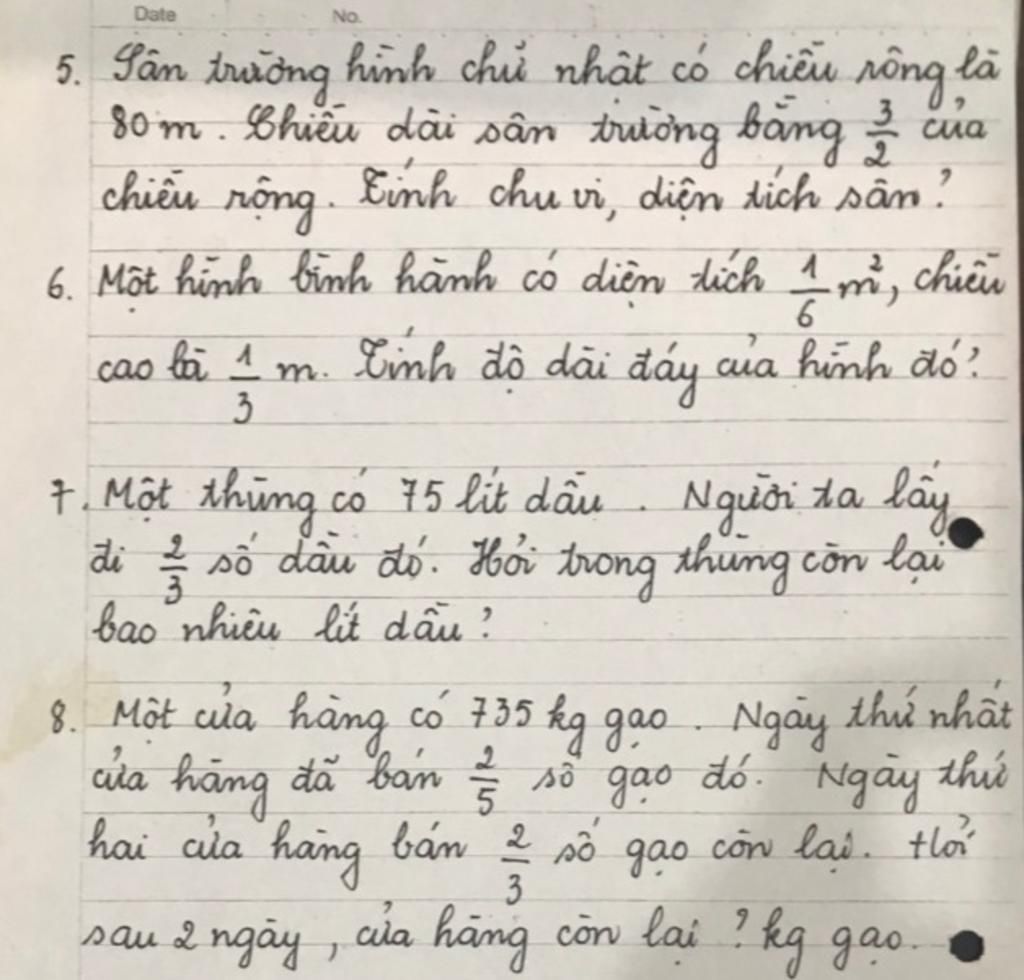 Date No.
5. Sân trường hình chữ nhật có chiều rộng là
80 m. Chiều dài sân trường bằng 3/2 của
chiều rộng. Tính chu vi, diện tích sân?
6. Một hình bình hành có diện tích 1/6 m², chiều
cao là 1/3 m. Tính độ dài đáy của hình đó?
7. Một thùng có 75 lít dầu. Người ta lấy
đi 2/3 số dầu đó. Hỏi trong thùng còn lại
bao nhiêu lít dầu?
8. Một cửa hàng có 735 kg gạo. Ngày thứ nhất
cửa hàng đã bán 2/5 số gạo đó. Ngày thứ
hai cửa hàng bán 2/3 số gạo còn lại. Hỏi
sau 2 ngày, cửa hàng còn lại ? kg gạo.